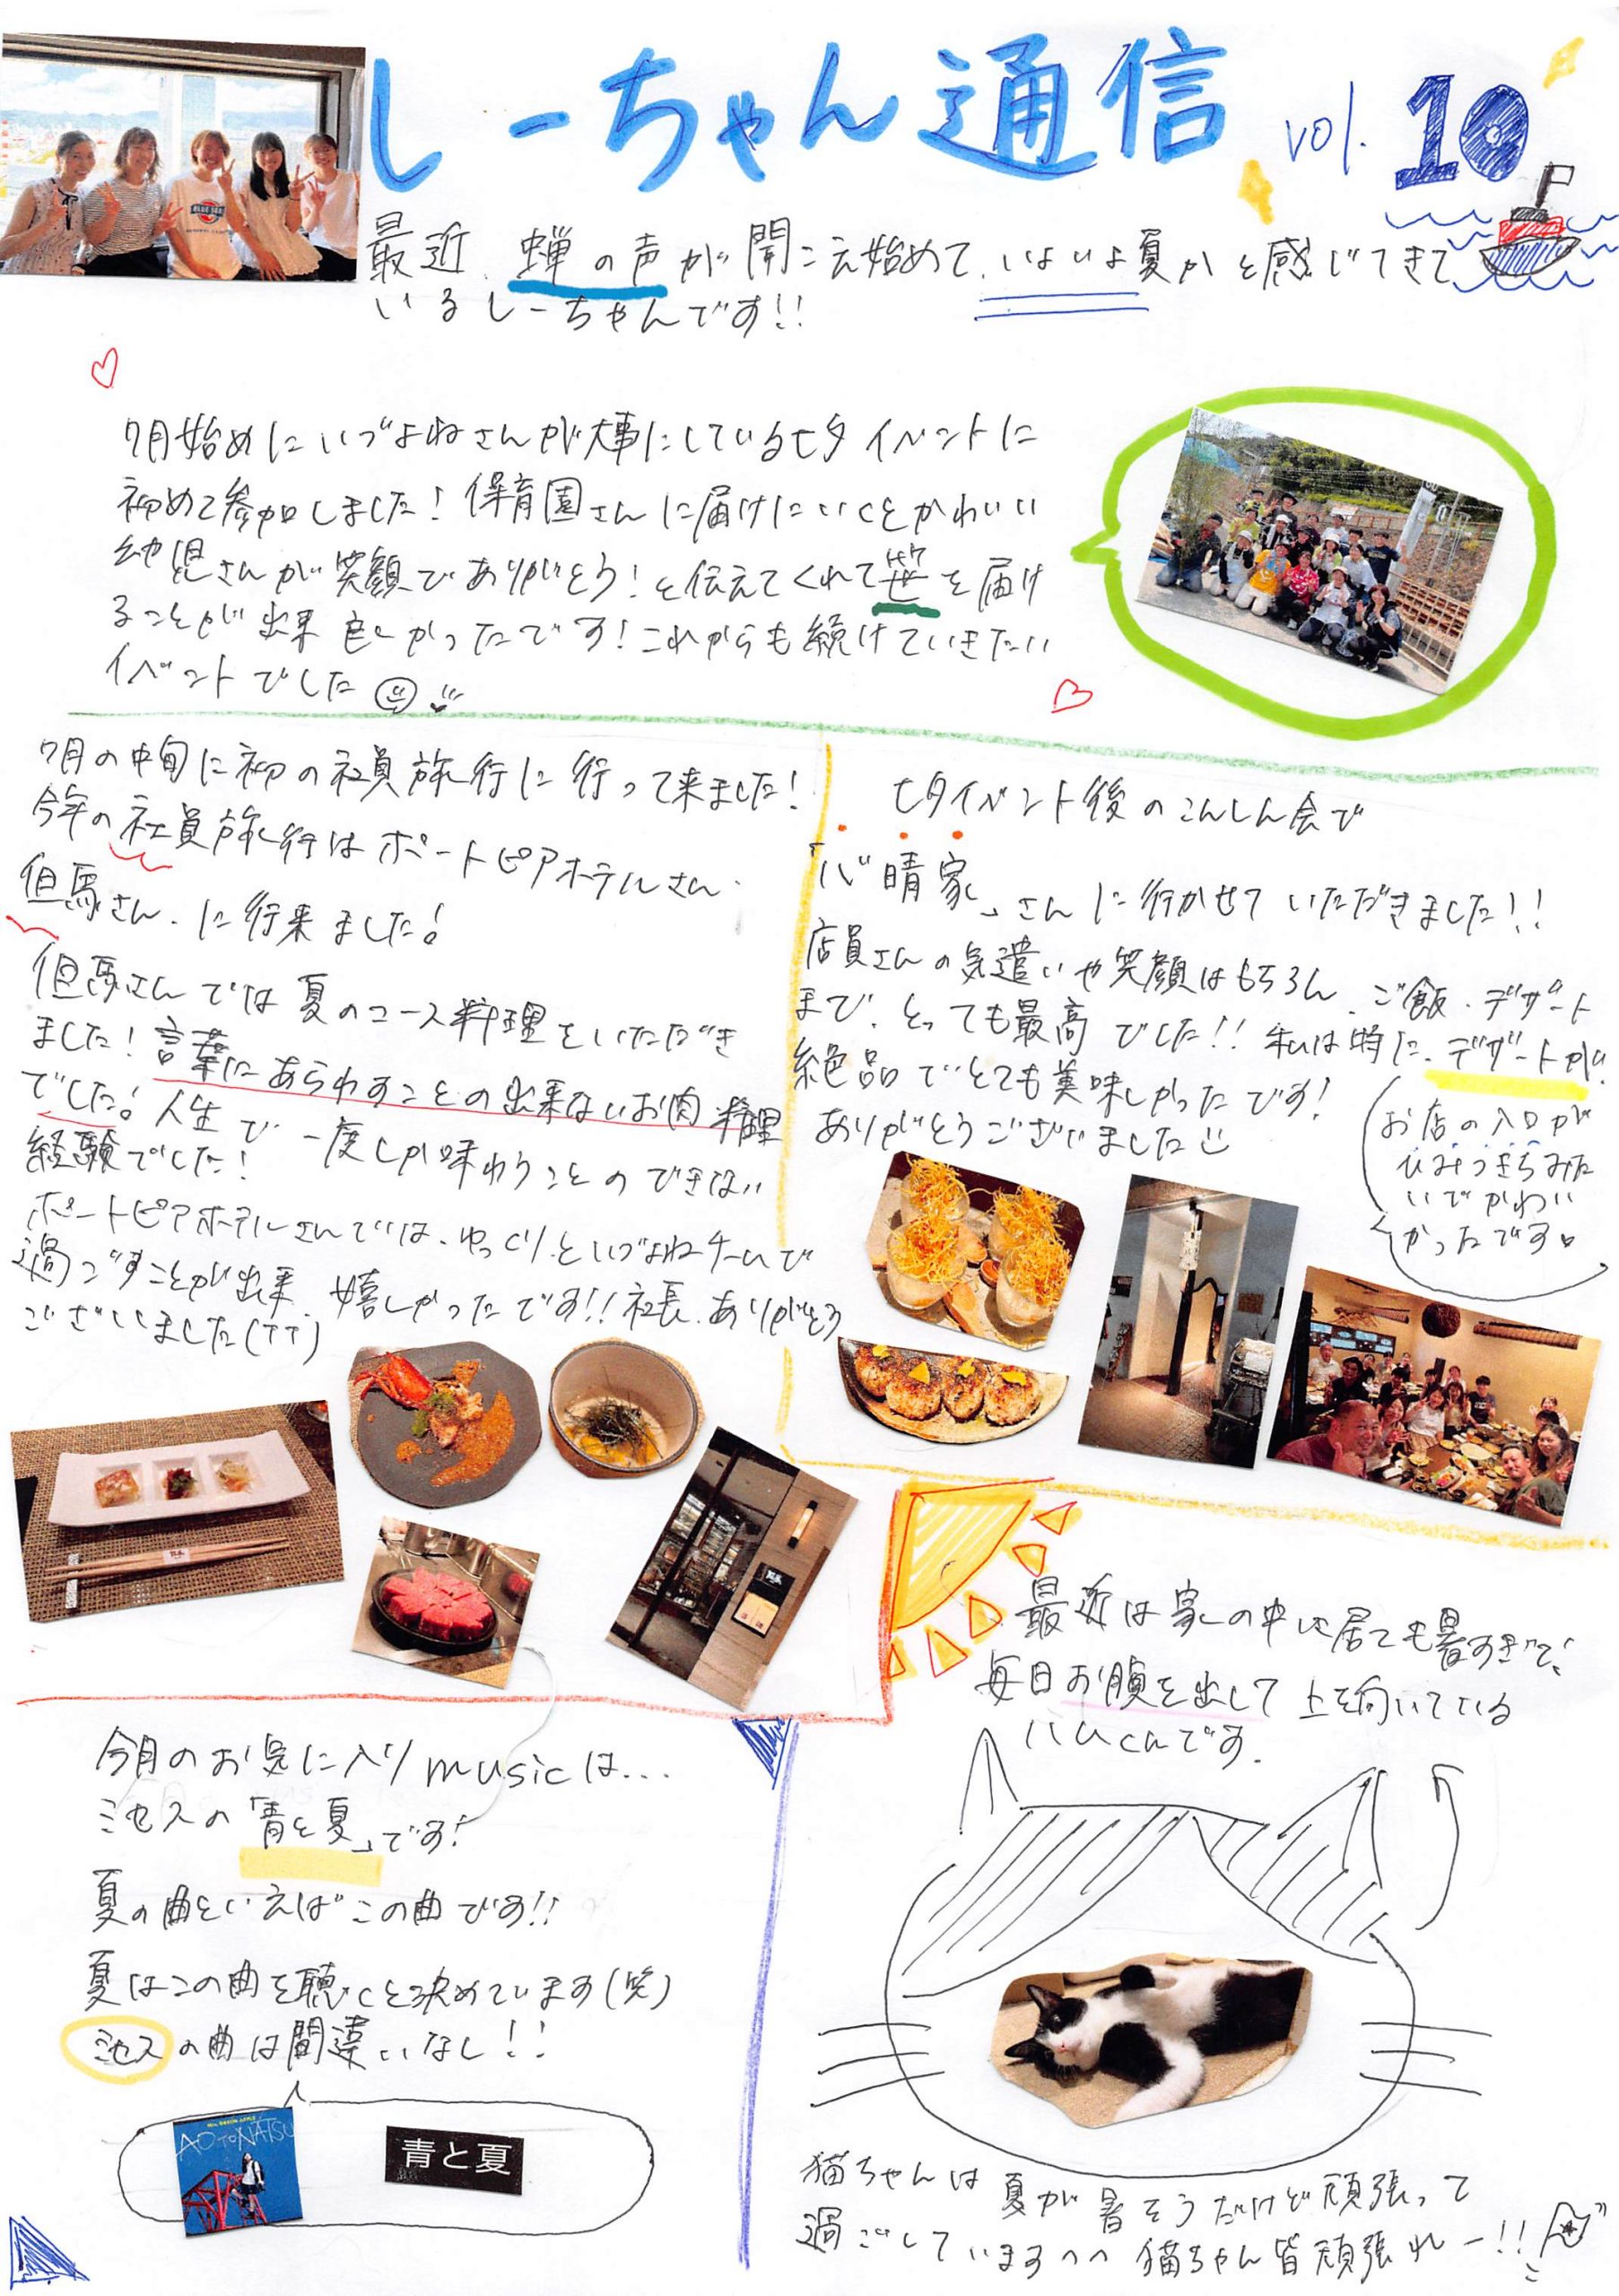 しーちゃん通信 vol.10
最近、蝉の声が聞こえ始めて、いよいよ夏かと感じてきて
いるしーちゃんです!!
7月始めにいづよねさんが大事にしている七夕イベントに
初めて参加しました！保育園さんに届けにいくとかわいい
幼児さんが笑顔でありがとう！と伝えてくれて笹を届け
ることが出来良かったです！これからも続けていきたい
イベントでした
7月の中旬に初の社員旅行に行って来ました！
今年の社員旅行はポートピアホテルさん、
但馬さん、に行来ました！
但馬さんでは夏のコース料理をいただき
ました！言葉にあらわすことの出来ないお肉料理
でした！人生で一度しか味わうことのできない
経験でした！
ポートピアホテルさんでは、ゆっくりといづよねチームで
過ごすことが出来、嬉しかったです!!社長、ありがとう
ございました(TT)
七夕イベント後のこんしん会で
「バ晴家」さんに行かせていただきました!!
店員さんの気遣いや笑顔はもちろん、ご飯・デザート
まで、とっても最高でした!!私は特に、デザートが
絶品でとても美味しかったです！
ありがとうございました
お店の入口が
ひみつきちみた
いでかわい
かったです
最近は家の中に居ても暑すぎて、
毎日お腹を出して上を向いている
ハムくんです。
今月のお気に入りmusicは...
ミセスの「青と夏」です！
夏の曲といえばこの曲です!!
夏はこの曲を聴くと決めています(笑)
ミセスの曲は間違いなし!!
Mrs. GREEN APPLE
AO TO NATSU
青と夏
猫ちゃんは夏が暑そうだけど頑張って
過ごしています^^ 猫ちゃん皆頑張れー!!